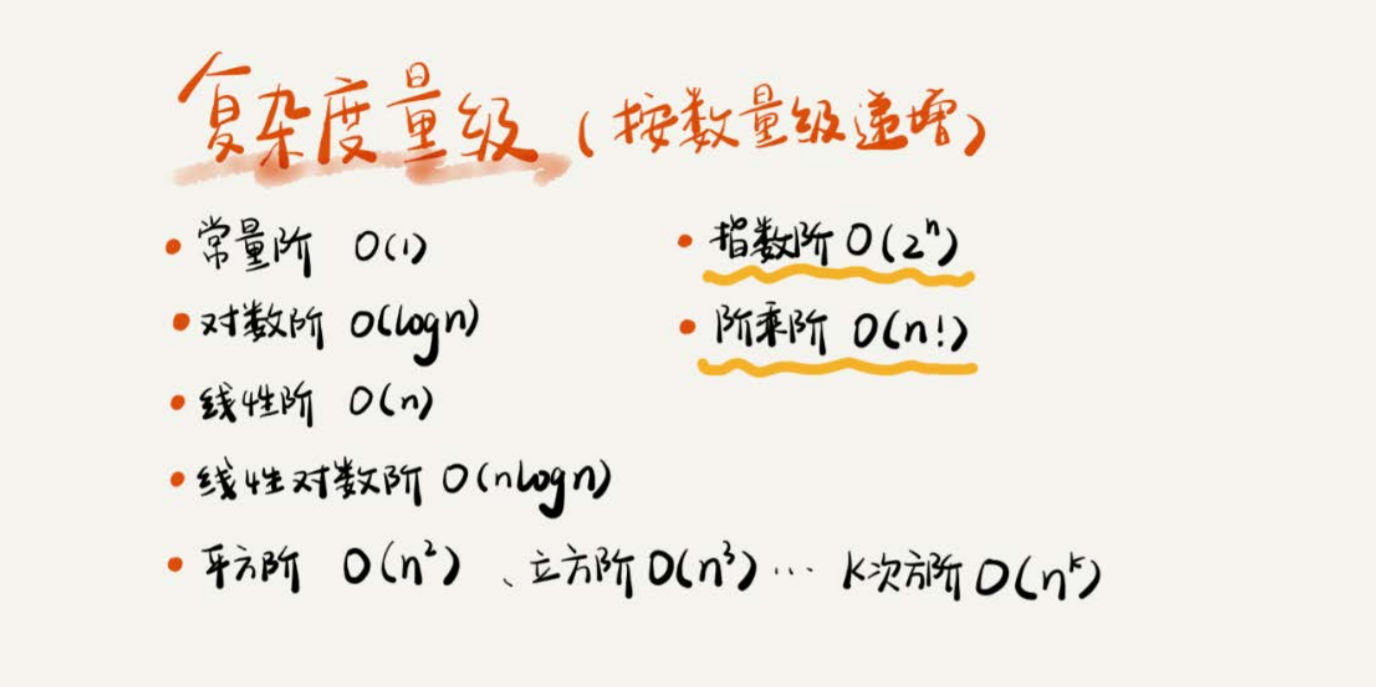 复杂度量级（按数量级递增）
• 常量阶 O(1)
• 对数阶 O(logn)
• 线性阶 O(n)
• 线性对数阶 O(nlogn)
• 平方阶 O(n²) 、立方阶 O(n³) … k次方阶 O(nᵏ)
• 指数阶 O(2ⁿ)
• 阶乘阶 O(n!)